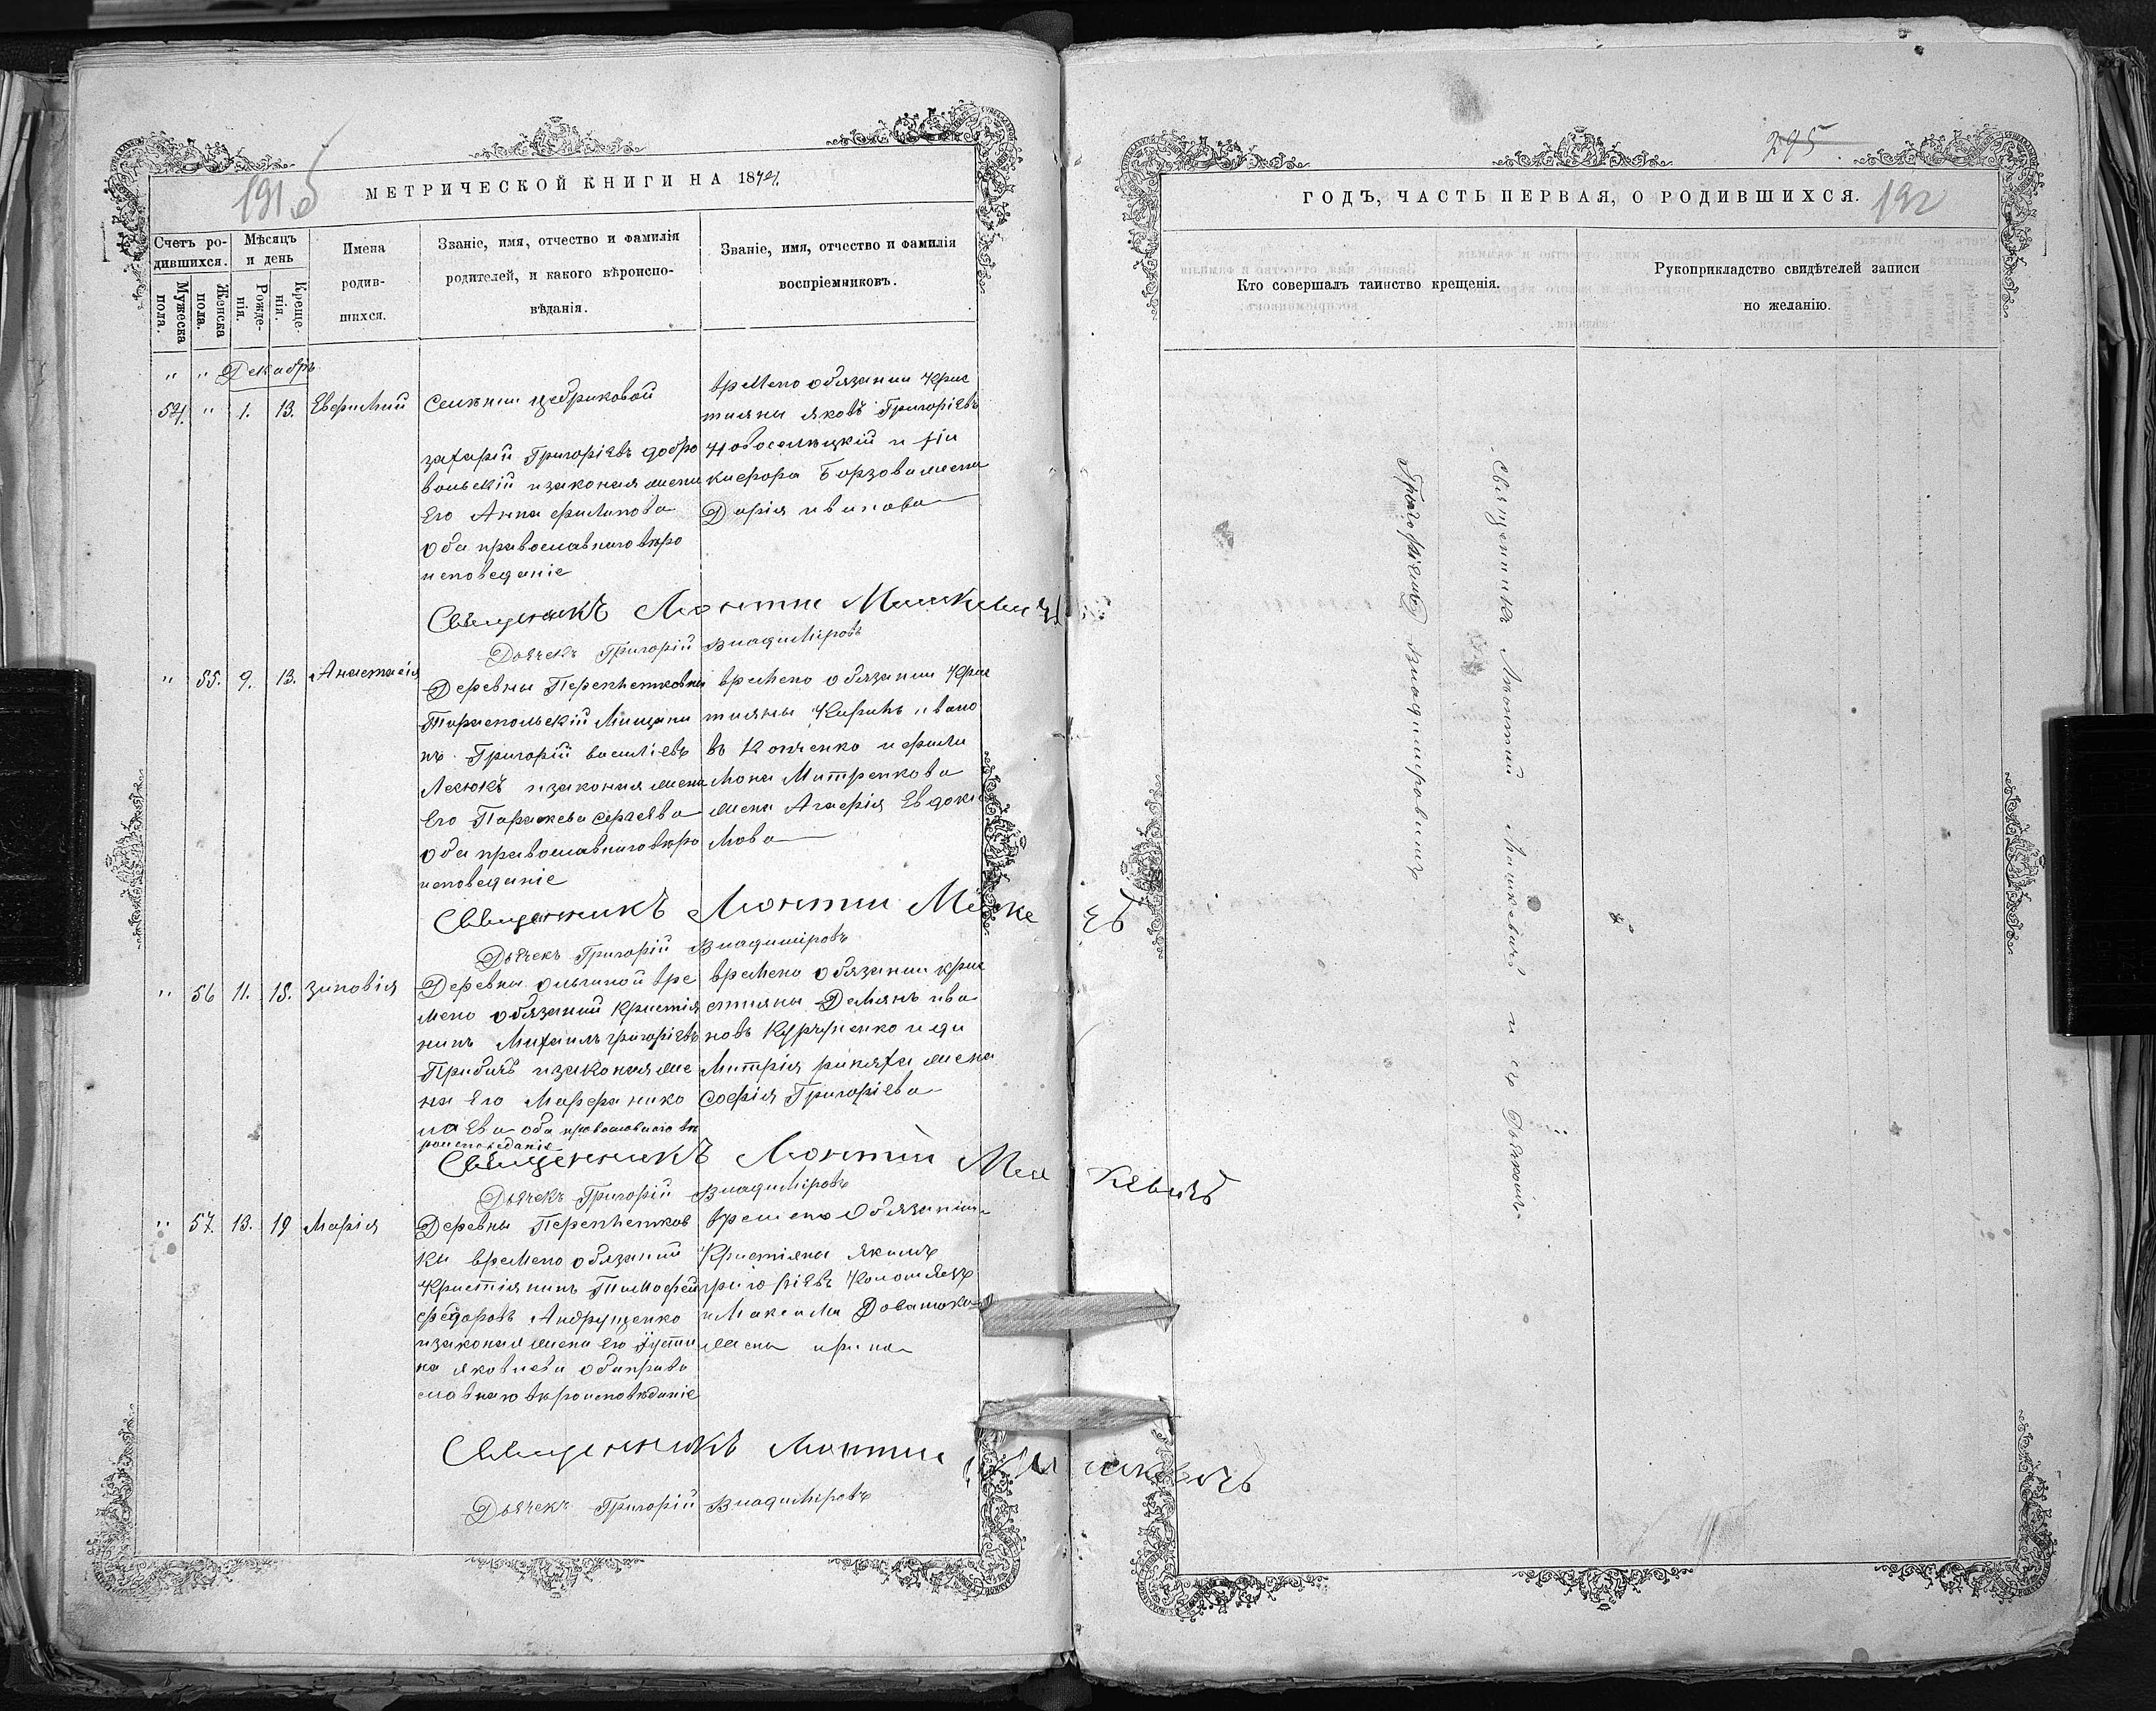 191 б
МЕТРИЧЕСКОЙ КНИГИ НА 1874
Счетъ ро-
дившихся.
Мужеска
пола.
Женска
пола.
Мѣсяцъ
и день
Рожде-
нія.
Креще-
нія.
Имена
родив-
шихся.
Званіе, имя, отчество и фамилія
родителей, и какого вѣроиспо-
вѣданія.
Званіе, имя, отчество и фамилія
воспріемниковъ.
" " Декабрь
54. " 1. 13. Евфимий
Селѣнии цебриковой
захарий Григоріевъ добро
вольский изаконая жена
Его Анна филипова
оба православнаго вѣро
исповедание
времено обязании Крис
тияни яковъ Григоріевъ
Новоселицкій и Ни
кифора Борзова жена
Дарія ивинова
Священикъ Леонтии Машкевичъ
Дьячекъ Григорій Владиміровъ
" 55. 9. 13. Анастасія
Деревны
Тираспольскій Мищани
нъ Григорій василіевъ
Лехюкъ изаконая жена
Его Параскева Сергеева
оба православнаго вѣро
исповедание
времено обязании Крис
тияны Кирилъ ивано
въ и фили
мона Митренкова
жена Агафія Евдоки
мова
Священникъ Леонтии Машке чъ
Дьячекъ Григорій Владиміровъ
" 56 11. 15. зиновія
Деревни ольгиной вре
мено обязаний Кристия
нинъ Михаилъ григоріевъ
изаконая же
на Его Марфа нико
лаЕва оба православнаго вѣ
роисповедание
времено обязании крис
стияны Демянъ ива
новъ и ди
митрія жена
Софія Григоріева
Священникъ Леонтий Маш кевичъ
Дьячекъ Григорій Владиміровъ
" 57. 13. 19 Марія
Деревны
ки времено обязаний
Кристіянинъ Тимофей
федоровъ Андрущенко
изаконая жена Его Іусти
на яковлева оба право
славнаго вѣроисповѣдание
времено обязаннии
Кристіяны якимъ
григоріевъ
и Максима
жена ирина
Священникъ Леонтии Ма шкевичъ
Дьячекъ Григорій Владиміровъ
295
ГОДЪ, ЧАСТЬ ПЕРВАЯ, О РОДИВШИХСЯ.
192
Кто совершалъ таинство крещенія.
Рукоприкладство свидѣтелей записи
по желанію.
Священникъ Леонтий Машкевичъ и съ Дьячкомъ
Григоріемъ Владимировимъ